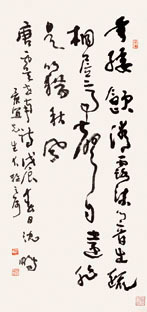 垂緌飲清露流響出疏
桐居高聲自遠非
是藉秋風
唐虞世南詩戊辰春日沈鵬
先生